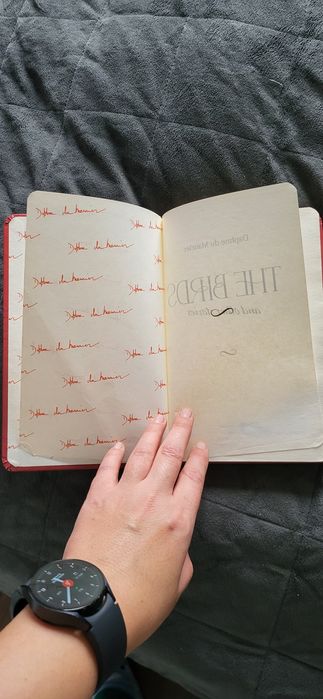 Daphne du Maurier
Daphne du Maurier
Daphne du Maurier
Daphne du Maurier
Daphne du Maurier
Daphne du Maurier
Daphne du Maurier
Daphne du Maurier
Daphne du Maurier
Daphne du Maurier
THE BIRDS
and other stories